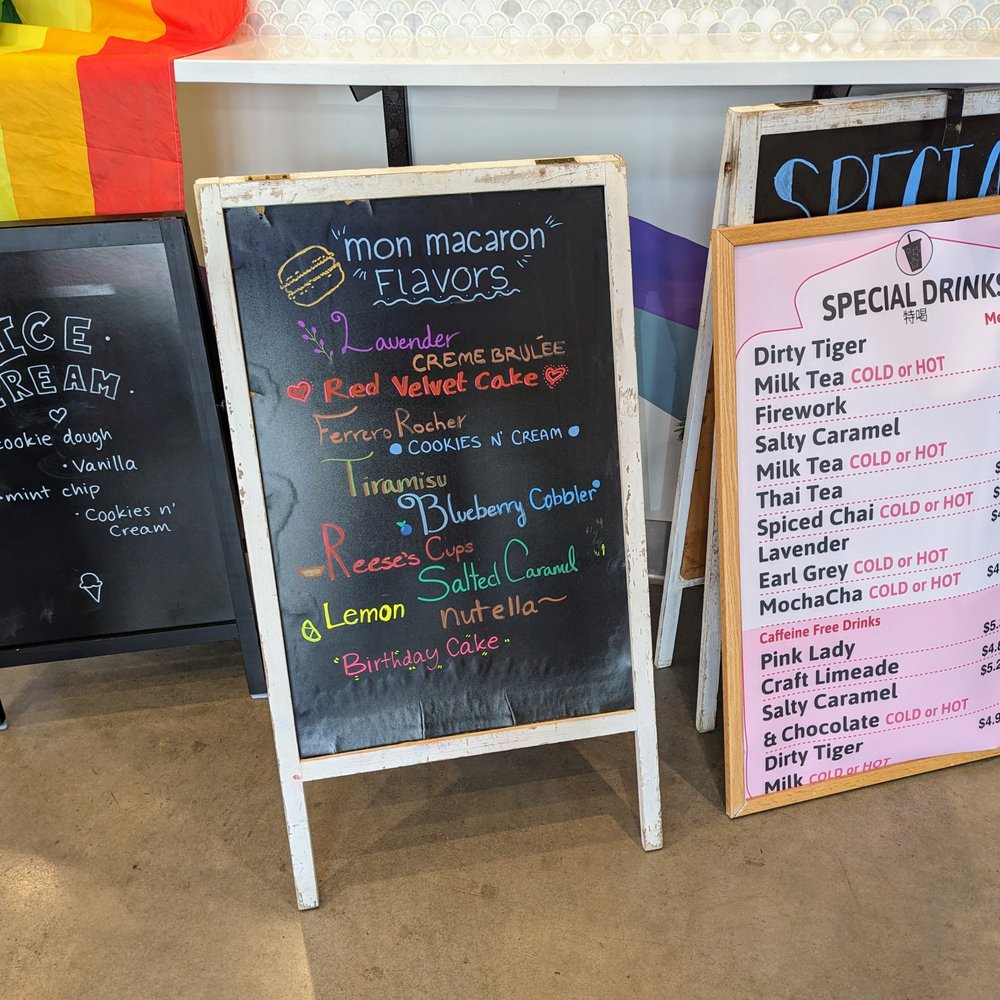 ICE
CREAM
cookie dough
Vanilla
mint chip
Cookies n'
Cream
"mon macaron"
"Flavors"
Lavender
CREME BRULÉE
Red Velvet Cake
Ferrero Rocher
COOKIES N' CREAM
Tiramisu
Blueberry Cobbler
Reese's Cups
Salted Caramel
Lemon
nutella~
"Birthday Cake"
SPECIA
SPECIAL DRINKS
特喝
Me
Dirty Tiger
Milk Tea COLD or HOT
Firework
Salty Caramel
Milk Tea COLD or HOT
Thai Tea
Spiced Chai COLD or HOT
Lavender
Earl Grey COLD or HOT
MochaCha COLD or HOT
Caffeine Free Drinks
Pink Lady
Craft Limeade
Salty Caramel
& Chocolate COLD or HOT
Dirty Tiger
Milk COLD or HOT